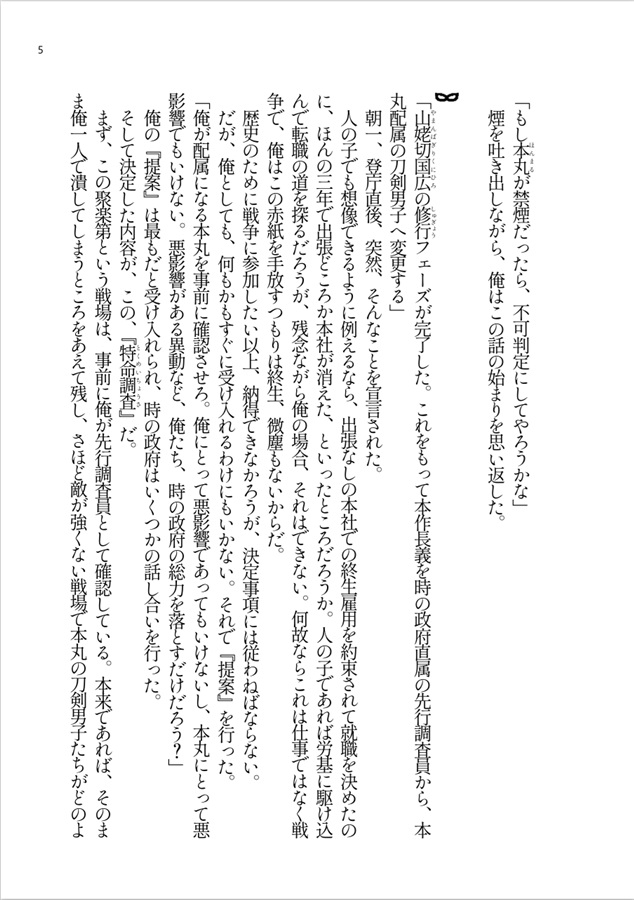 5
「もし本丸が禁煙だったら、不可判定にしてやろうかな」
煙を吐き出しながら、俺はこの話の始まりを思い返した。
「山姥切国広の修行フェーズが完了した。これをもって本作長義を時の政府直属の先行調査員から、本
丸配属の刀剣男子へ変更する」
朝一、登庁直後、突然、そんなことを宣言された。
人の子でも想像できるように例えるなら、出張なしの本社での終生雇用を約束されて就職を決めたの
に、ほんの三年で出張どころか本社が消えた、といったところだろうか。人の子であれば労基に駆け込
んで転職の道を探るだろうが、残念ながら俺の場合、それはできない。何故ならこれは仕事ではなく戦
争で、俺はこの赤紙を手放すつもりは終生、微塵もないからだ。
歴史のために戦争に参加したい以上、納得できなかろうが、決定事項には従わねばならない。
だが、俺としても、何もかもすぐに受け入れるわけにもいかない。それで『提案』を行った。
「俺が配属になる本丸を事前に確認させろ。俺にとって悪影響であってもいけないし、本丸にとって悪
影響でもいけない。悪影響がある異動など、俺たち、時の政府の総力を落とすだけだろう？」
俺の『提案』は最もだと受け入れられ、時の政府はいくつかの話し合いを行った。
そして決定した内容が、この、『特命調査』だ。
まず、この聚楽第という戦場は、事前に俺が先行調査員として確認している。本来であれば、そのま
ま俺一人で潰してしまうところをあえて残し、さほど敵が強くない戦場で本丸の刀剣男子たちがどのよ